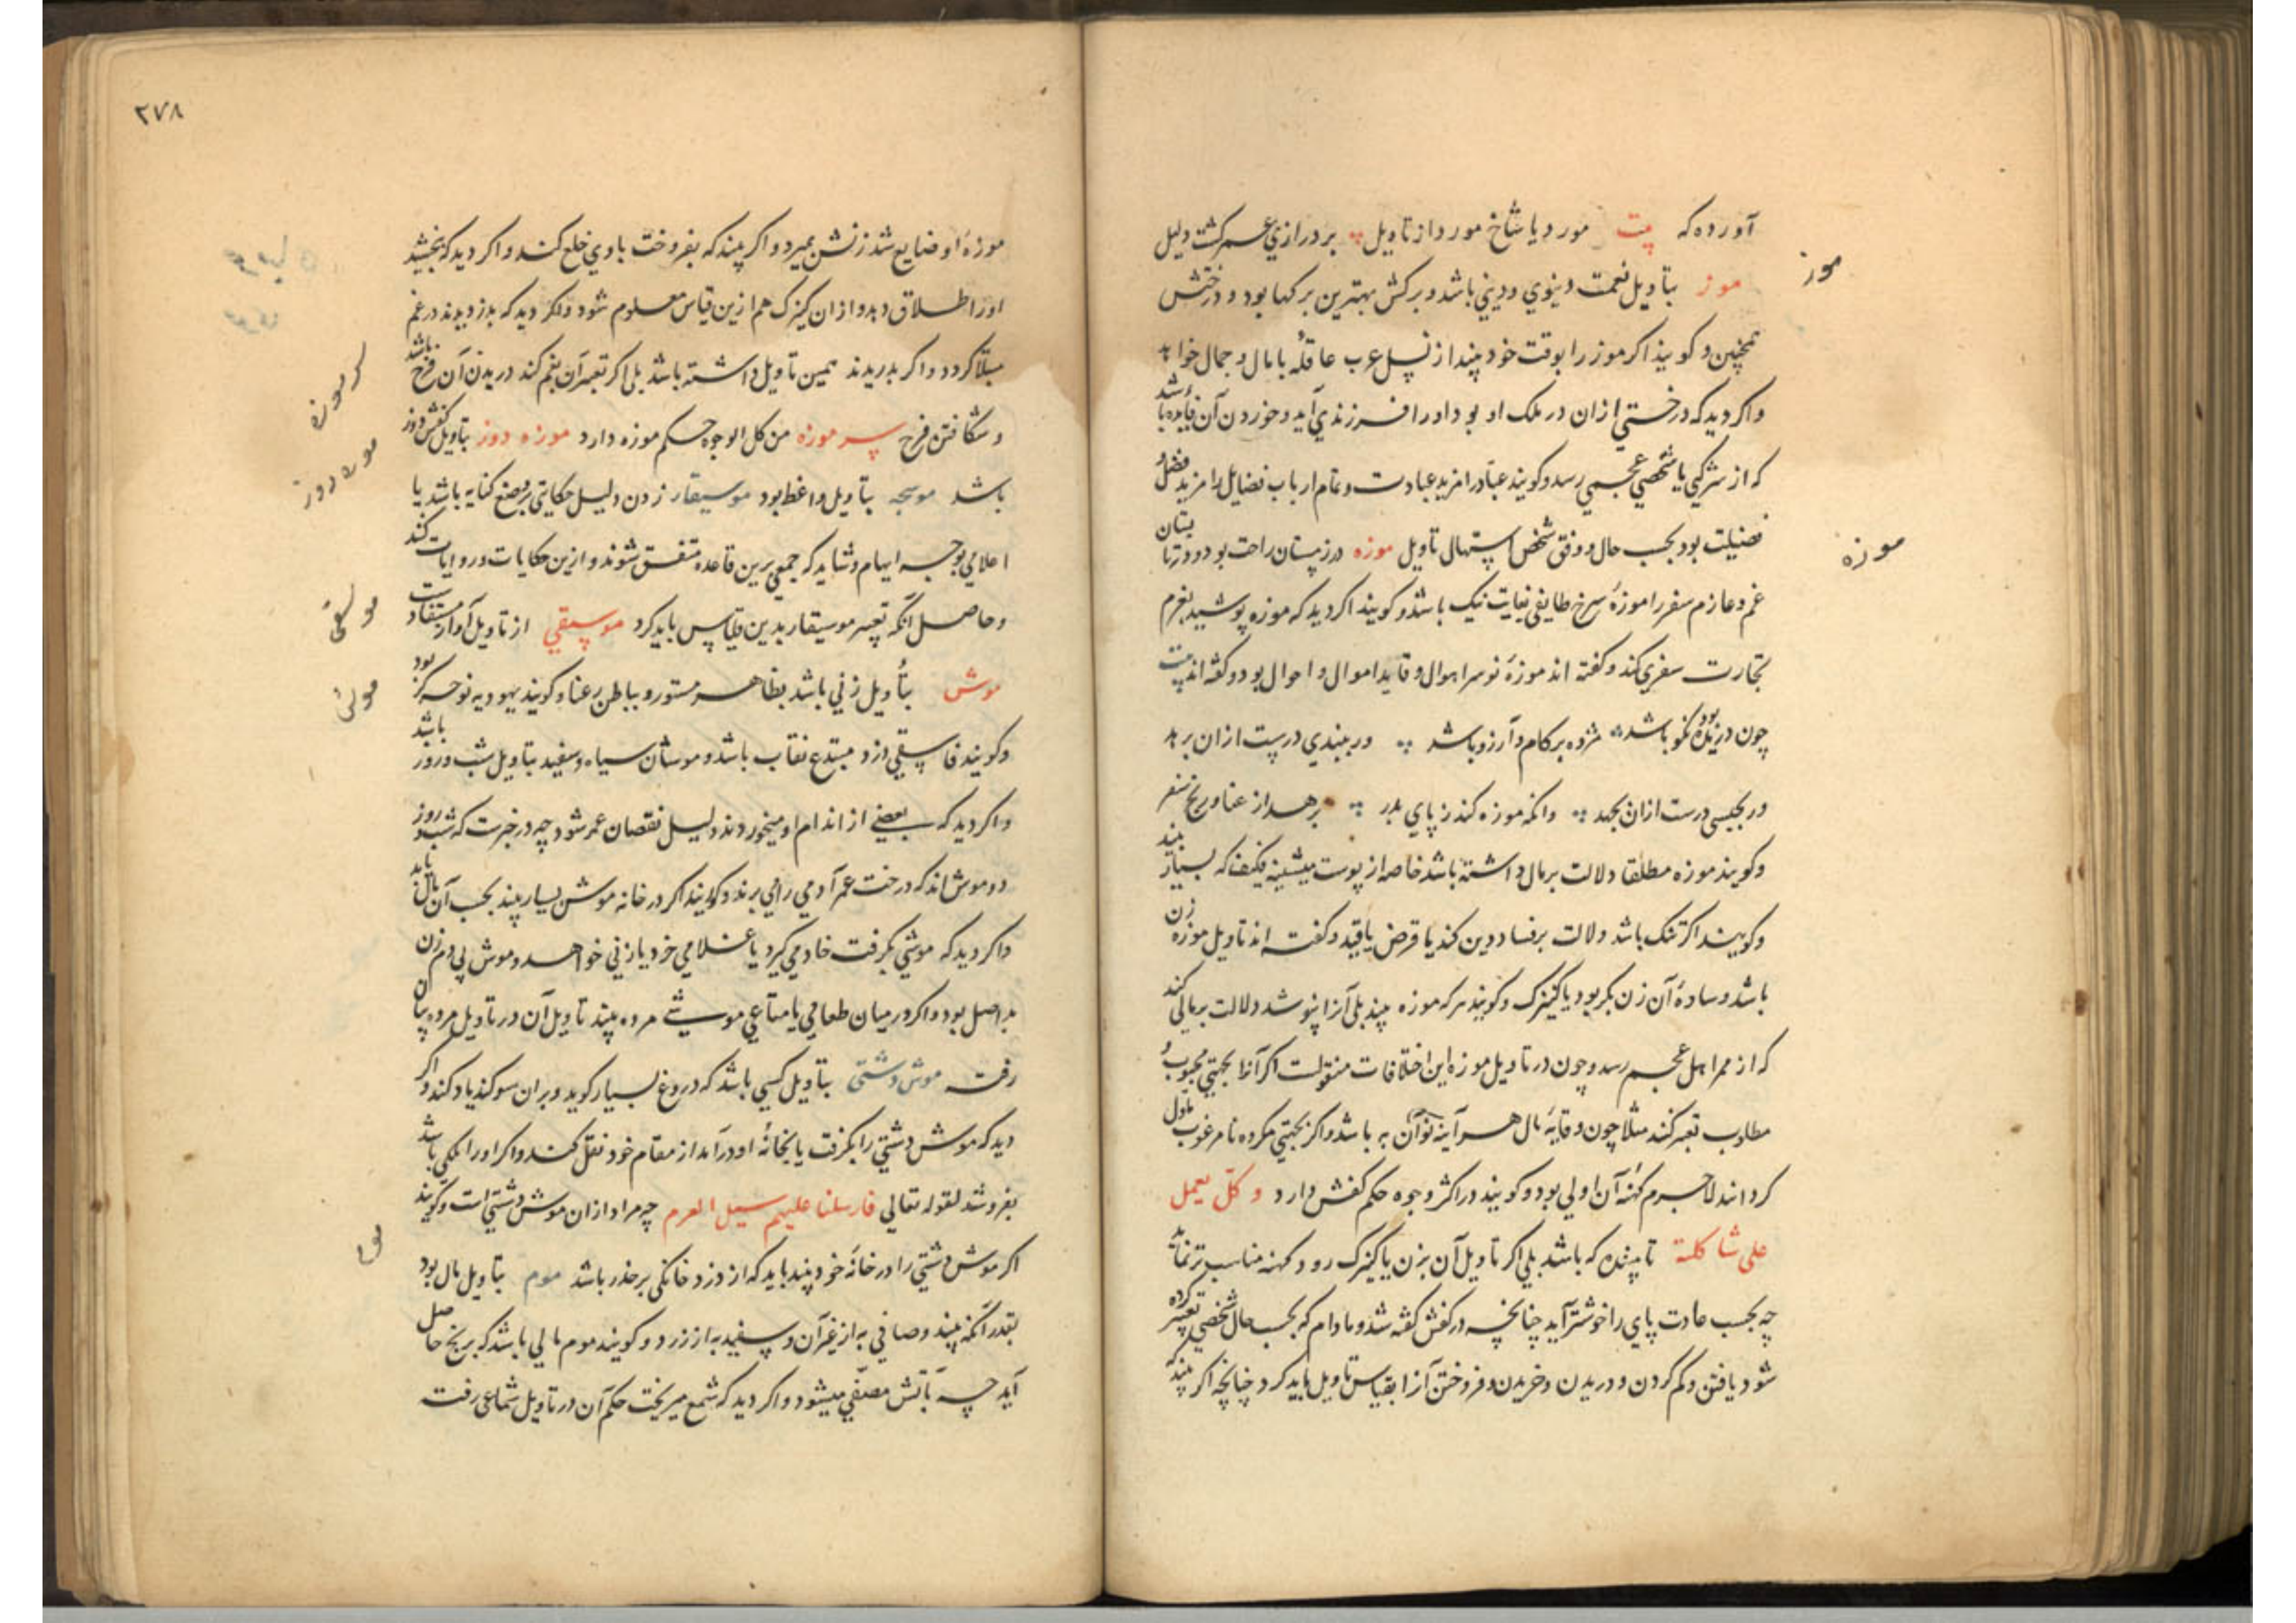 آورده که بیت مورد یا شاخ مورد از تاویل بر درازی عمر گشت دلیل
مور
موز بتاویل نعمت دنیوی و دینی باشد و برکش بهترین برکها بود و درختش
همچنین و کویند اگر موز را بوقت خود بیند از نسل عرب عاقله با مال و جمال خواهد
و اکر دید که درختی ازان در ملک او بود اورا فرزندی آید و خوردن آن فایده باشد
که از شرکی یا شخصی عجمی رسد و کویند عبّادرا مزید عبادت و تمام ارباب فضایل را مزید فضل و
فضیلت بود بحسب حال و وفق شخص استهال تاویل موزه در زمستان راحت بود و در تابستان
موزه
غم و عازم سفر را موزهٔ سرخ طایفی بغایت نیک باشد و کویند اکر دید که موزه پوشید بعزم
تجارت سفری کند و کفته اند موزهٔ نو سر اهوال و قاید اموال و احوال بود و کفته اند بیت
چون در نکو باشد مژده بر کام و آرزو باشد ور ببندی درست ازان برهد
درست ازان بجهد وانکه موزه کند ز پای بدر برهد از عنا و رنج سفر
و کویند موزه مطلقا دلالت بر مال داشته باشد خاصه از پوست میشینه که بسیار بیند
و کویند اکر تنک باشد دلالت بر فساد دین کند یا قرض یا قید و کفته اند تاویل موزه زن
باشد و سادهٔ آن زن بکر بود یا کنیزک و کویند هر که موزه بیند بلی آنرا نپوشد دلالت بر مالی کند
که از ممر اهل عجم رسد و چون در تاویل موزه این اختلافات منقولست اکر آنرا بجهتی محبوب و
مطلوب تعبیر کنند مثلا چون وقایهٔ مال هر آینه نو آن به باشد و اکر بجهتی مکروه نا مرغوب مأوّل
کردانند لاجرم کهنهٔ آن اولی بود و کویند در اکثر وجوه حکم کفش دارد و کلّ یعمل
علی شاکلته تا بیننده که باشد بلی اکر تاویل آن بزن یا کنیزک رود کهنه مناسب تر نماید
چه بحسب عادت پای را خوشتر آید چنانچه در کفش کفته شد و مادام که بحسب حال شخصی تعبیر کرده
شود یافتن و کم کردن و دریدن و خریدن و فروختن آنرا بقیاس تاویل باید کرد چنانچه اکر بیند که
۲۷۸
موزهٔ او ضایع شد زنش بمیرد و اکر بیند که بفروخت با وی خلع کند و اکر دید که ببخشید
اورا طلاق دهد و ازان کنیزک هم ازین قیاس معلوم شود و اکر دید که بدزدیدند در غم
مبتلا کردد و اکر بدریدند همین تاویل داشته باشد بلی اکر تعبیر آن بغم کند دریدن آن فرح باشد
سر موزه
و شکافتن فرح سر موزه من کل الوجوه حکم موزه دارد موزه دوز بتاویل کفش دوز
موزه دوز
باشد موسیچه بتاویل واعظ بود موسیقار زدن دلیل حکایتی بر وضع کنایه باشد یا
اعلامی بوجه ایهام و شاید که جمعی برین قاعده متفق شوند و ازین حکایات و روایات کند
و حاصل آنکه تعبیر موسیقار بدین قیاس باید کرد موسیقی از تاویل آواز مستفادست
موسیقی
موش بتأویل زنی باشد بظاهر مستور و بباطن رعنا و کویند یهودیه نوحه کر بود
موش
و کویند فاسقی دزد مبتدع نقاب باشد و موشان سیاه و سفید بتاویل شب و روز باشد
و اکر دید که بعضی از اندام او میخوردند دلیل نقصان عمر شود چه در خبرست که شب و روز
دو موش اند که درخت عمر آدمی را می برند و کویند اکر در خانه موش بسیار بیند بحسب آن مال یابد
و اکر دید که موشی بکرفت خادمی کیرد یا غلامی خرد یا زنی خواهد و موش پی دم زن
بد اصل بود و اکر در میان طعامی یا متاعی موشی مرده بیند تاویل آن در تاویل مرده بیان
رفت موش دشتی بتاویل کسی باشد که دروغ بسیار کوید و بران سوکند یاد کند و اکر
دید که موش دشتی را بکرفت یا بخانهٔ او درآمد از مقام خود نقل کند و اکر اورا ملکی باشد
بفروشد لقوله تعالی فارسلنا علیهم سیل العرم چه مراد ازان موش دشتی است و کویند
اکر موش دشتی را در خانهٔ خود بیند باید که از دزد خانکی بر حذر باشد موم بتاویل مال بود
موم
بقدر آنکه بیند و صافی به از غیر آن و سفید به از زرد و کویند موم مالی باشد که برنج حاصل
آید چه بآتش مصفّی میشود و اکر دید که شمع میریخت حکم آن در تاویل شماعی رفت